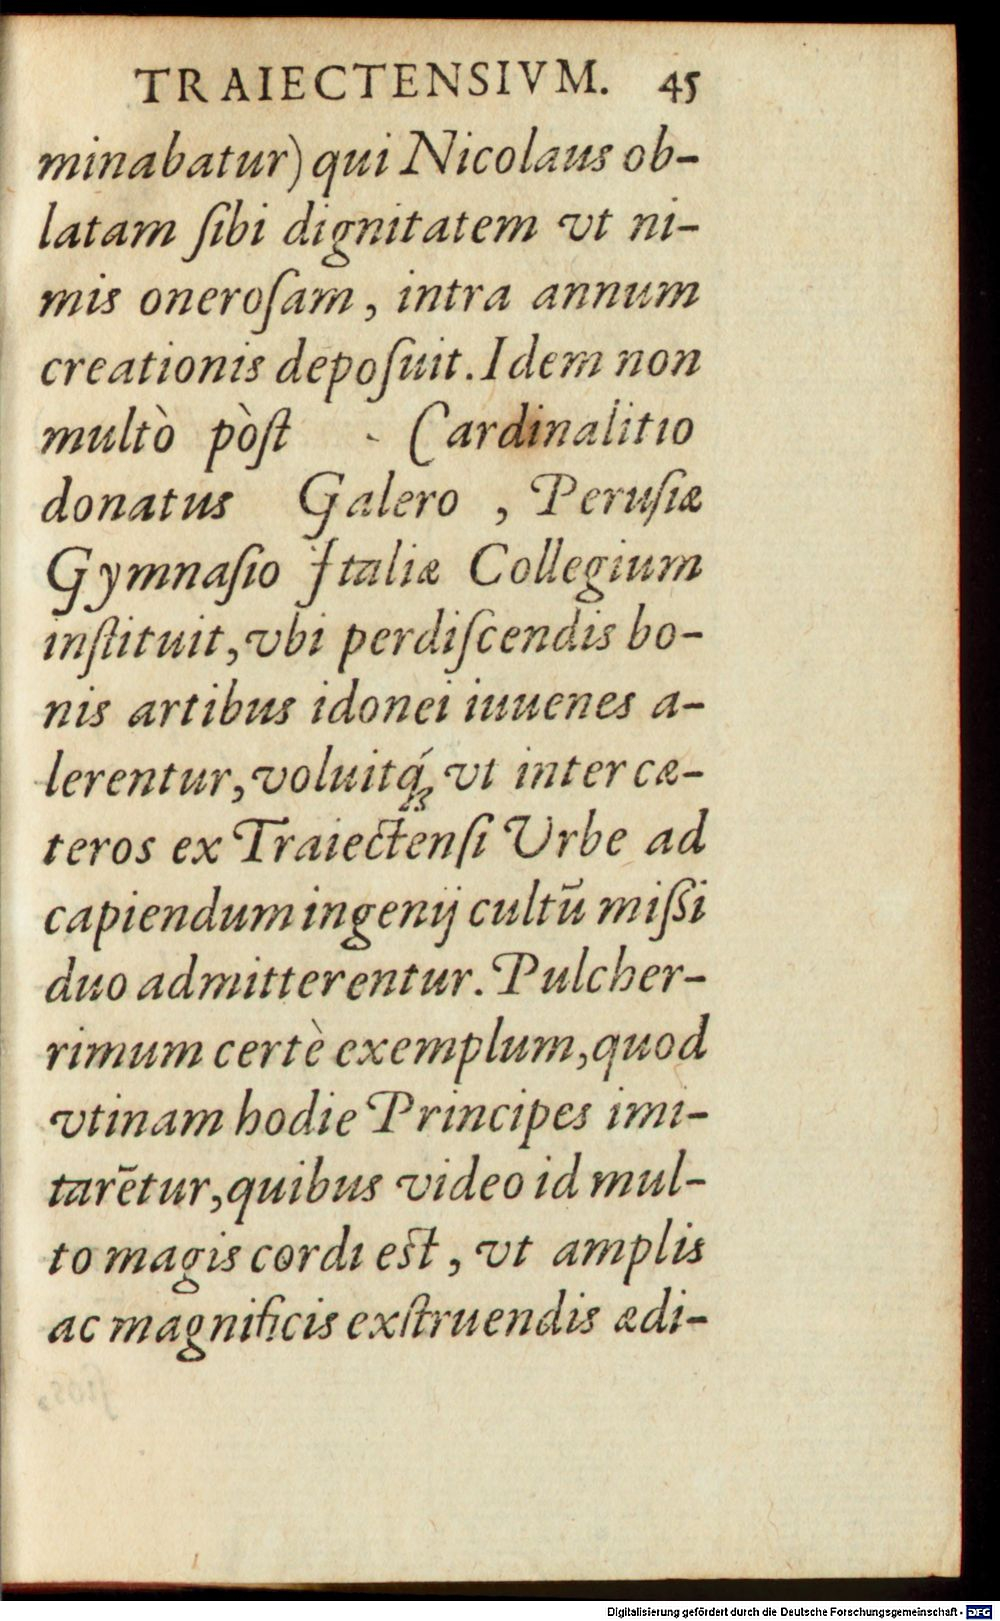 TRAIECTENSIVM. 45
minabatur) qui Nicolaus ob-
latam ſibi dignitatem vt ni-
mis oneroſam, intra annum
creationis depoſuit. Idem non
multò pòſt Cardinalitio
donatus Galero, Peruſiæ
Gymnaſio Italiæ Collegium
inſtituit, vbi perdiſcendis bo-
nis artibus idonei iuuenes a-
lerentur, voluitq́ꝫ vt inter cæ-
teros ex Traiectenſi Urbe ad
capiendum ingenij cultũ miſſi
duo admitterentur. Pulcher-
rimum certè exemplum, quod
vtinam hodie Principes imi-
tarẽtur, quibus video id mul-
to magis cordi est, vt amplis
ac magnificis exſtruendis ædi-
Digitalisierung gefördert durch die Deutsche Forschungsgemeinschaft - DFG